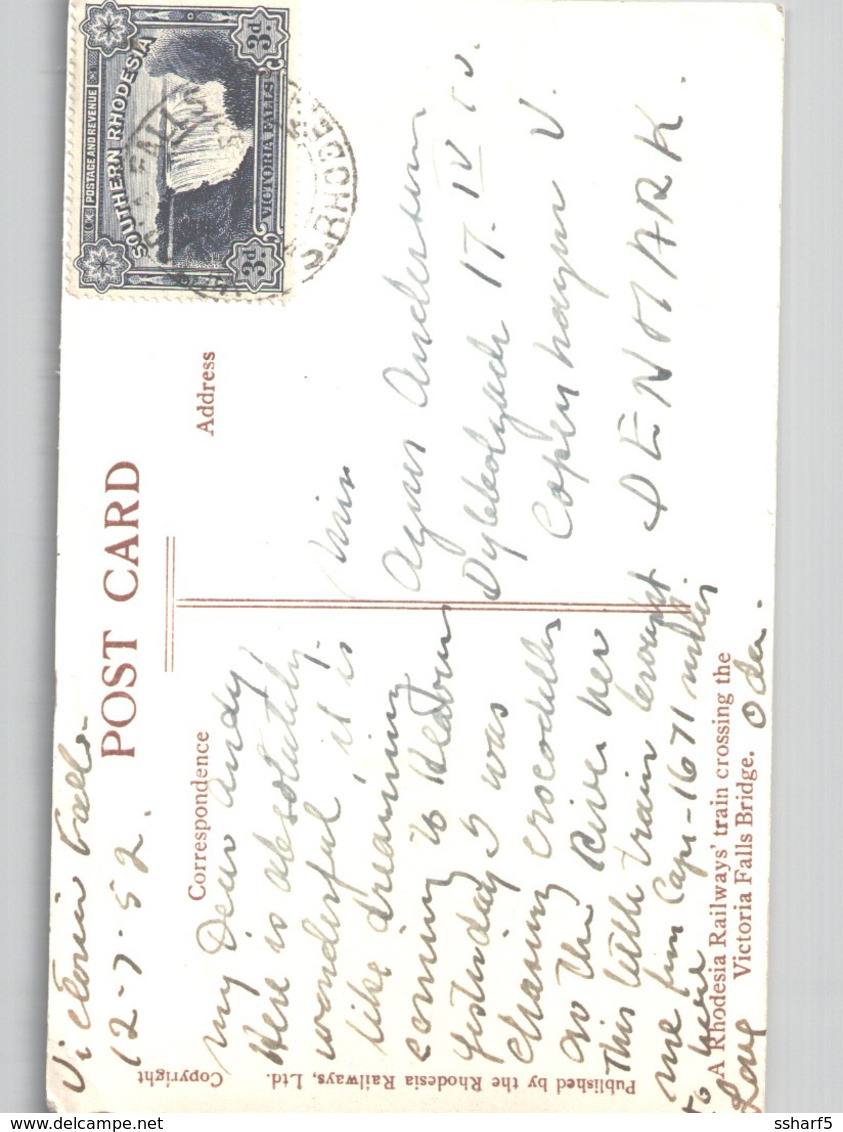 Victoria Falls.
12-7-52.
POST CARD
Correspondence
Address
My Dear Andy!
Here is absolutely
wonderful, it is
like dreaming
coming to Heaven
Yesterday I was
chasing crocodills
on the River her
This little train brought
me from Cape-1671 milles
to here
Love Oda.
Miss
Agnes Andersen
Dybbølsgade 17. IV tv.
Copenhagen V.
DENMARK.
A Rhodesia Railways' train crossing the
Victoria Falls Bridge.
Published by the Rhodesia Railways, Ltd.
Copyright
POSTAGE AND REVENUE
SOUTHERN RHODESIA
VICTORIA FALLS
3d.
3d.
FALLS
S.RHODE
© ssharf5
delcampe.net